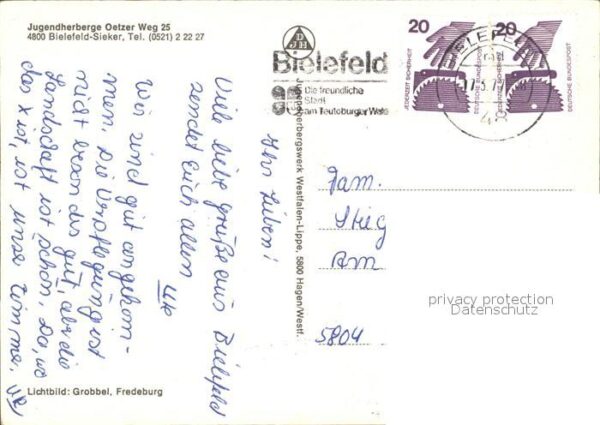 Jugendherberge Oetzer Weg 25
4800 Bielefeld-Sieker, Tel. (0521) 2 22 27
Ihr Lieben!
Viele liebe Grüße aus Bielefeld
sendet Euch allen
Wir sind gut angekom-
men. Die Verpflegung ist
nicht besonders gut, aber die
Landschaft ist schön. Da, wo
das X ist, ist unser Zimmer.
Lichtbild: Grobbel, Fredeburg
Jugendherbergswerk Westfalen-Lippe, 5800 Hagen/Westf.
DJH
Bielefeld
Die freundliche
Stadt
am Teutoburger Wald
BIELEFELD
20
JEDERZEIT SICHERHEIT
DEUTSCHE BUNDESPOST
20
JEDERZEIT SICHERHEIT
DEUTSCHE BUNDESPOST
Fam.
Am
5804
privacy protection
Datenschutz